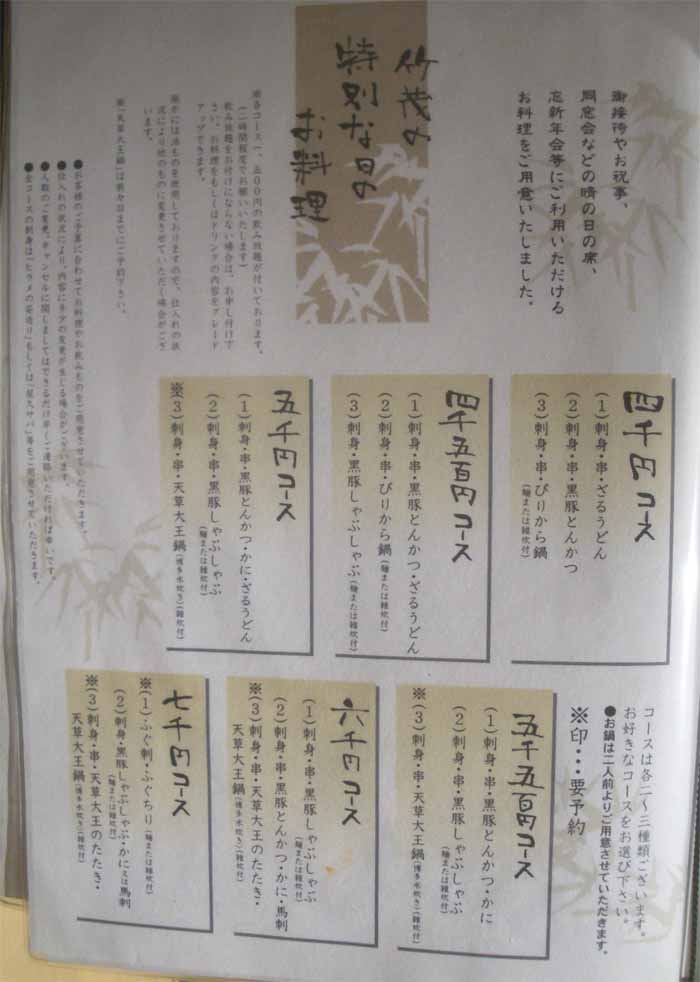 御接待やお祝事、
同窓会などの晴の日の席、
忘新年会等にご利用いただける
お料理をご用意いたしました。
竹茂の
特別な日の
お料理
※各コース一、五〇〇円の飲み放題が付いております。
(二時間程度でお願いいたします)
飲み放題をお付けにならない場合は、お申し付け下
さい。お料理をもしくはドリンクの内容をグレード
アップできます。
状況により他のものに変更させていただく場合がござ
います。
※「天草大王鍋」は前々日までにご予約下さい。
●お客様のご予算に合わせてお料理やお飲みものをご用意させていただきます。
●仕入れの状況により、内容に多少の変更が生じる場合がございます。
●人数のご変更、キャンセルに関しましてはできるだけ早くご連絡いただければ幸いです。
●全コースの刺身は「ヒラメの姿造り」もしくは「屋久サバ」等をご用意させていただきます。
四千円コース
(1)刺身・串・ざるうどん
(2)刺身・串・黒豚とんかつ
(3)刺身・串・ぴりから鍋
(麺または雑炊付)
四千五百円コース
(1)刺身・串・黒豚とんかつ・ざるうどん
(2)刺身・串・ぴりから鍋(麺または雑炊付)
(3)刺身・串・黒豚しゃぶしゃぶ(麺または雑炊付)
五千円コース
(1)刺身・串・黒豚とんかつ・かに・ざるうどん
(2)刺身・串・黒豚しゃぶしゃぶ
(麺または雑炊付)
※(3)刺身・串・天草大王鍋(博多水炊き)(雑炊付)
コースは各二〜三種類ございます。
お好きなコースをお選び下さい。
●お鍋は二人前よりご用意させていただきます。
※印・・・要予約
五千五百円コース
(1)刺身・串・黒豚とんかつ・かに
(2)刺身・串・黒豚しゃぶしゃぶ
(麺または雑炊付)
※(3)刺身・串・天草大王鍋(博多水炊き)(雑炊付)
六千円コース
(1)刺身・串・黒豚しゃぶしゃぶ
(麺または雑炊付)
(2)刺身・串・黒豚とんかつ・かに・馬刺
※(3)刺身・串・天草大王のたたき・
天草大王鍋(博多水炊き)(雑炊付)
七千円コース
※(1)ふぐ刺・ふぐちり(麺または雑炊付)
(2)刺身・黒豚しゃぶしゃぶ・かに又は馬刺
(麺または雑炊付)
※(3)刺身・串・天草大王のたたき・
天草大王鍋(博多水炊き)(雑炊付)